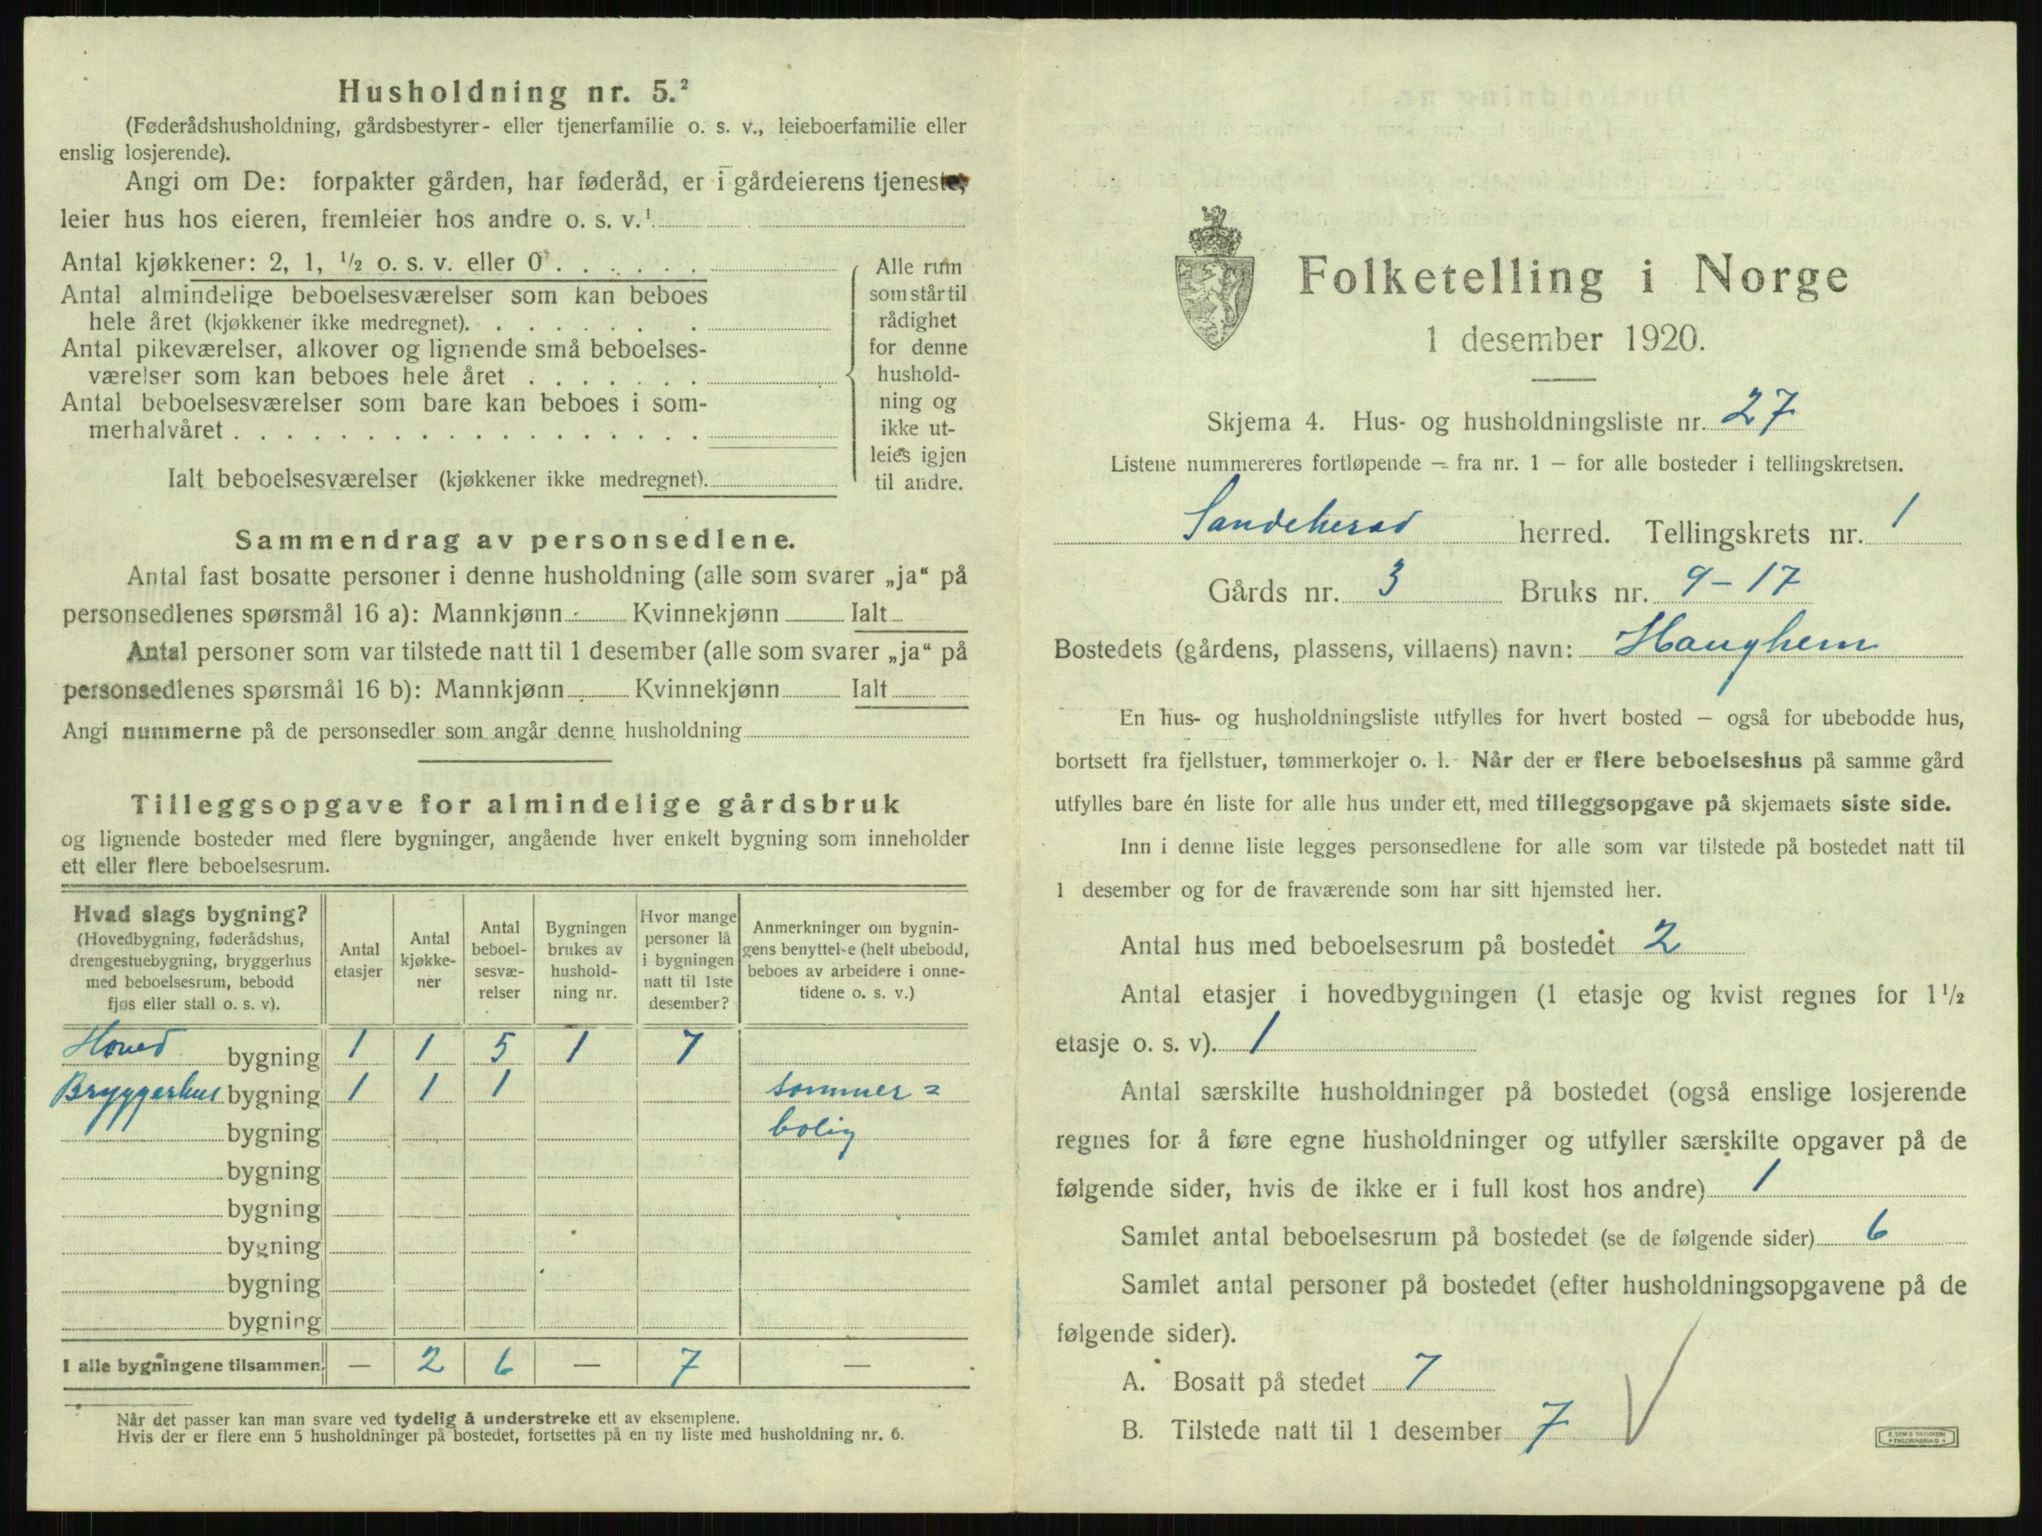 Husholdning nr. 5.²
(Føderådshusholdning, gårdsbestyrer- eller tjenerfamilie o. s. v., leieboerfamilie eller
enslig losjerende).
Angi om De: forpakter gården, har føderåd, er i gårdeierens tjeneste,
leier hus hos eieren, fremleier hos andre o. s. v.¹
Antal kjøkkener: 2, 1, ½ o. s. v. eller 0
Antal almindelige beboelsesværelser som kan beboes
hele året (kjøkkener ikke medregnet).
Antal pikeværelser, alkover og lignende små beboelses-
værelser som kan beboes hele året
Antal beboelsesværelser som bare kan beboes i som-
merhalvåret
Ialt beboelsesværelser (kjøkkener ikke medregnet).
Alle rum
som står til
rådighet
for denne
hushold-
ning og
ikke ut-
leies igjen
til andre.
Sammendrag av personsedlene.
Antal fast bosatte personer i denne husholdning (alle som svarer „ja“ på
personsedlenes spørsmål 16 a): Mannkjønn Kvinnekjønn Ialt
Antal personer som var tilstede natt til 1 desember (alle som svarer „ja“ på
personsedlenes spørsmål 16 b): Mannkjønn Kvinnekjønn Ialt
Angi nummerne på de personsedler som angår denne husholdning
Tilleggsopgave for almindelige gårdsbruk
og lignende bosteder med flere bygninger, angående hver enkelt bygning som inneholder
ett eller flere beboelsesrum.
Hvad slags bygning?
(Hovedbygning, føderådshus,
drengestuebygning, bryggerhus
med beboelsesrum, bebodd
fjøs eller stall o. s. v).
Antal
etasjer
Antal
kjøkke-
ner
Antal
beboel-
sesvæ-
relser
Bygningen
brukes av
hushold-
ning nr.
Hvor mange
personer lå
i bygningen
natt til 1ste
desember?
Anmerkninger om bygnin-
gens benyttelse (helt ubebodd,
beboes av arbeidere i onne-
tidene o. s. v.)
Hoved bygning 1 1 5 1 7
Bryggerhus bygning 1 1 1 sommer=
bygning bolig
bygning
bygning
bygning
bygning
bygning
I alle bygningene tilsammen. — 2 6 — 7 —
Når det passer kan man svare ved tydelig å understreke ett av eksemplene.
Hvis der er flere enn 5 husholdninger på bostedet, fortsettes på en ny liste med husholdning nr. 6.
Folketelling i Norge
1 desember 1920.
Skjema 4. Hus- og husholdningsliste nr. 27
Listene nummereres fortløpende — fra nr. 1 — for alle bosteder i tellingskretsen.
Sandeherad herred. Tellingskrets nr. 1
Gårds nr. 3 Bruks nr. 9-17
Bostedets (gårdens, plassens, villaens) navn: Haughem
En hus- og husholdningsliste utfylles for hvert bosted — også for ubebodde hus,
bortsett fra fjellstuer, tømmerkojer o. l. Når der er flere beboelseshus på samme gård
utfylles bare én liste for alle hus under ett, med tilleggsopgave på skjemaets siste side.
Inn i denne liste legges personsedlene for alle som var tilstede på bostedet natt til
1 desember og for de fraværende som har sitt hjemsted her.
Antal hus med beboelsesrum på bostedet 2
Antal etasjer i hovedbygningen (1 etasje og kvist regnes for 1½
etasje o. s. v). 1
Antal særskilte husholdninger på bostedet (også enslige losjerende
regnes for å føre egne husholdninger og utfyller særskilte opgaver på de
følgende sider, hvis de ikke er i full kost hos andre) 1
Samlet antal beboelsesrum på bostedet (se de følgende sider) 6
Samlet antal personer på bostedet (efter husholdningsopgavene på de
følgende sider).
A. Bosatt på stedet 7
B. Tilstede natt til 1 desember 7